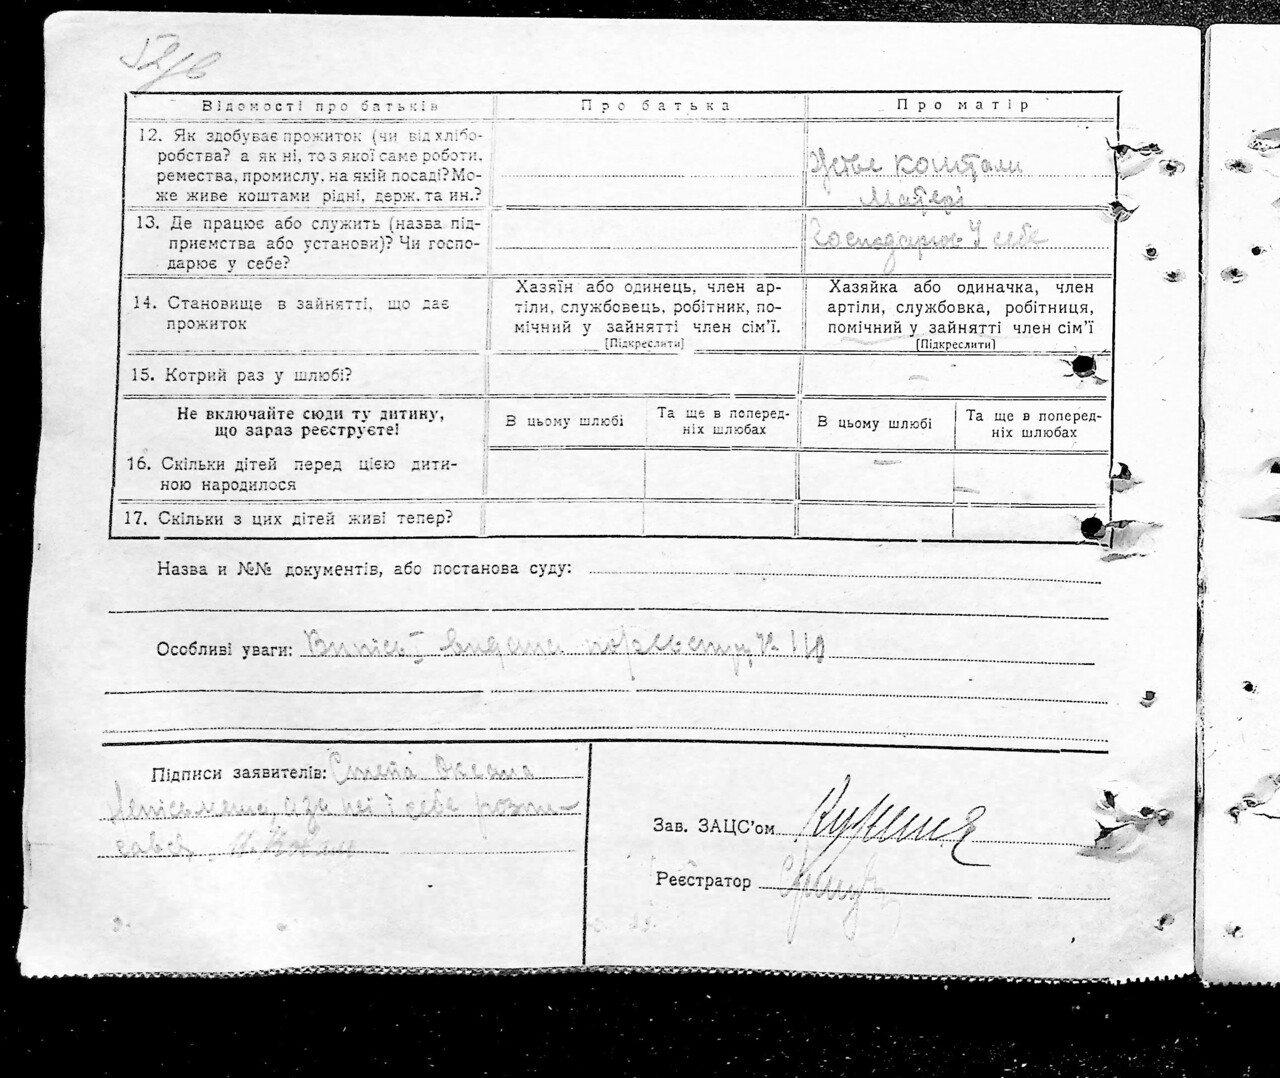 Відомості про батьків Про батька Про матір
12. Як здобуває прожиток (чи від хлібо-
робства? а як ні, то з якої саме роботи,
ремества, промислу, на якій посаді? Мо-
же живе коштами рідні, держ. та ин.?
коштами
Матері
13. Де працює або служить (назва під-
приємства або установи)? Чи госпо-
дарює у себе?
Господарює у себе
14. Становище в зайнятті, що дає
прожиток
Хазяїн або одинець, член ар-
тіли, службовець, робітник, по-
мічний у зайнятті член сім'ї.
[Підкреслити]
Хазяйка або одиначка, член
артіли, службовка, робітниця,
помічний у зайнятті член сім'ї
[Підкреслити]
15. Котрий раз у шлюбі? —
Не включайте сюди ту дитину,
що зараз реєструєте!
В цьому шлюбі
Та ще в поперед-
ніх шлюбах
В цьому шлюбі
Та ще в поперед-
ніх шлюбах
16. Скільки дітей перед цією дити-
ною народилося
— —
17. Скільки з цих дітей живі тепер?
Назва и №№ документів, або постанова суду:
Особливі уваги: Випись видана по реєстру № 110
Підписи заявителів: Оксана
неписьмена, а за неї і себе розпи-
сався
Зав. ЗАЦС'ом
Реєстратор